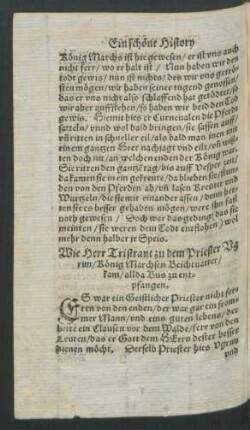 Ein schöne History
König Marchs ist hie gewesen / er ist vns auch
nicht ferr / wo er halt ist / Nun haben wir den
todt gewis / nun ist nichts / des wir vns getrö-
sten mögen / wir haben seiner tugend genossen /
das er vns nicht also schlaffend hat getödtet / so
wir aber auffstehen / so haben wir beid den Tod
gewis. Hiemit hies er Curnenalen die Pferd
satteln / vnnd wol bald bringen / sie sassen auff /
vñ ritten in schneller eil / als bald man inen mit
einem gantzen Heer nachjagt vnd eilt / vñ wuß-
ten doch nit / an welchen enden der König war /
Sie ritten den gantzẽ tag / bis auff Vesper zeit /
da kamen sie in ein gereute / da blieben sie / stun-
den von den Pferden ab / vñ lasen Kreuter vnd
Wurtzeln / die sie mit einander assen / denn het-
ten sie es besser gehaben mögen / were ihn fast
noth gewesen / Doch war das geding / das sie
meinten / sie weren dem Todt entflohen / wol
mehr denn halber jr Speis.
Wie Herr Tristrant zu dem Priester Vg
rim / König Marchsen Beichtuatter /
kam / allda Bus zu ent-
pfangen.
ES war ein Geistlicher Priester nicht fer-
ren von den enden / der war gar ein from-
mer Mann / vnd eins guten lebens / der
hette ein Clausen vor dem Walde / ferr von den
Leuten / das er Gott dem HErrn dester besser
dienen möcht. Derselb Priester hies Vgrim
vnd